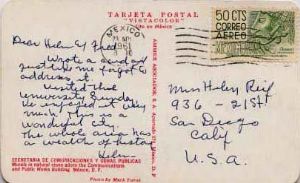 TARJETA POSTAL
"VISTACOLOR"
MEXICO
1961
50 CTS
CORREO
AEREO
Dear Helen & Fred
Wrote a card and
just like me forgot to
address it.
Visited this
university Sunday
We enjoyed it very
much. This is a
wonderful city.
The whole area has
a wealth of history
Helen
Mrs Helen Reif
936 - 21st
San Diego
Calif
U.S.A.
SECRETARIA DE COMUNICACIONES Y OBRAS PUBLICAS
Murals in natural stone adorn the Communications
and Public Works Building, México, D. F.
Photo by Mark Turok